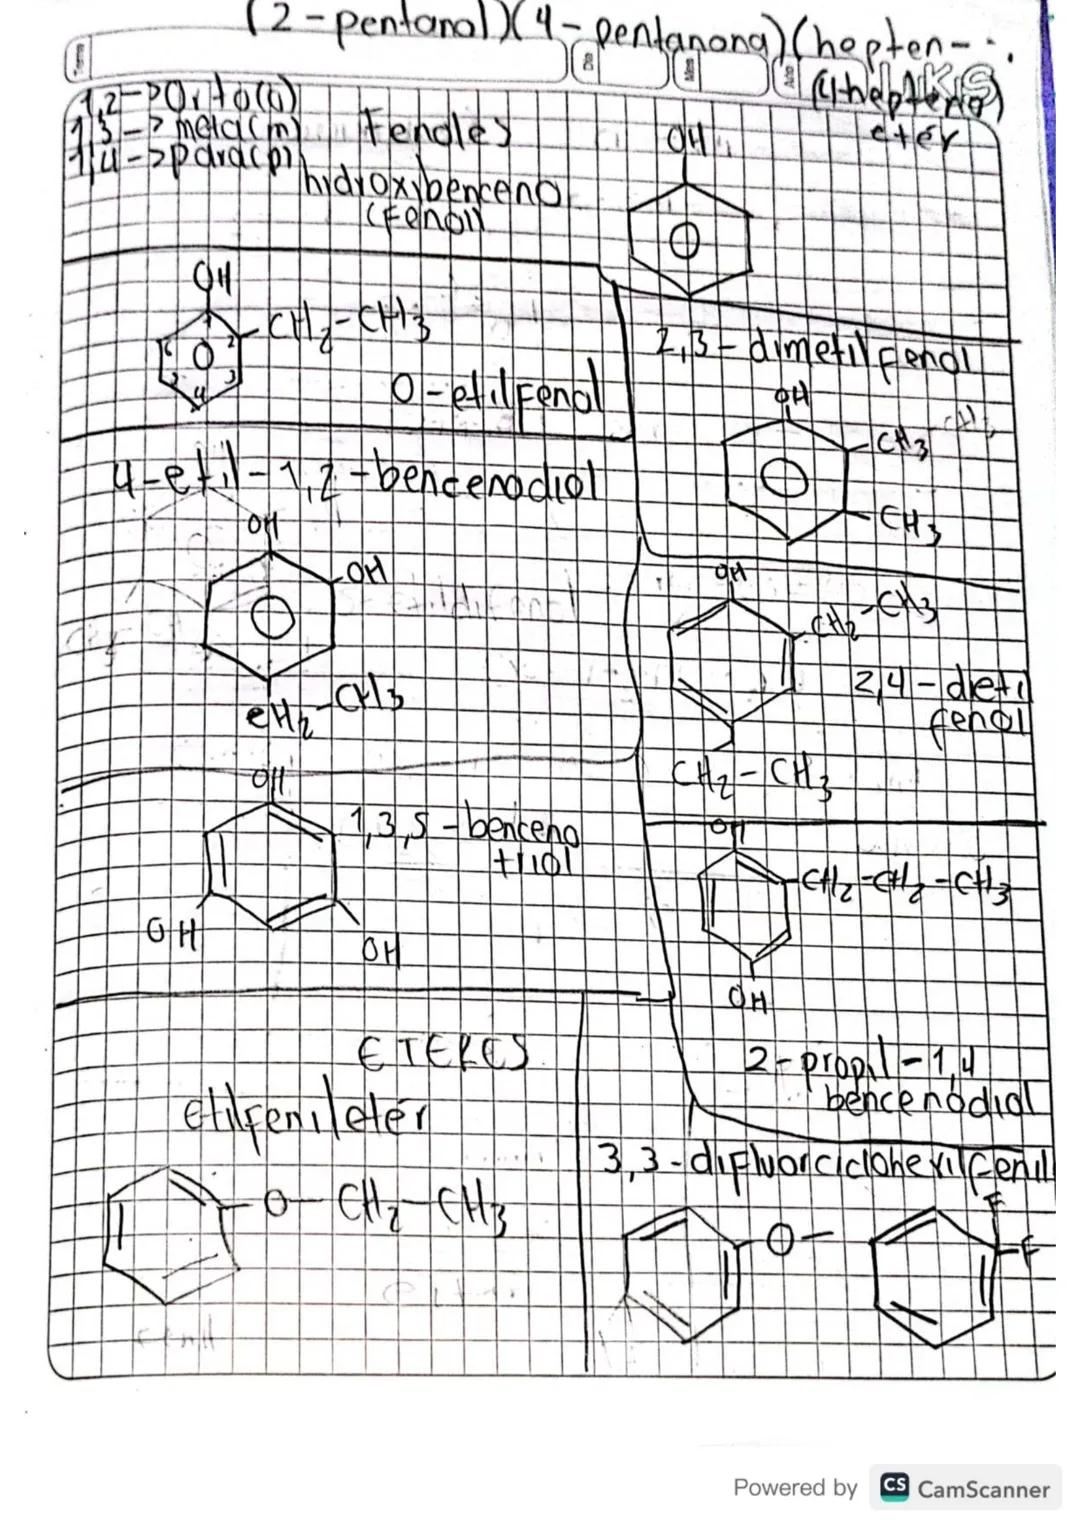 (2-pentanol)(4-pentanona)(hepten-
(4hepteno)
eter
1,2->Orto(o)
1,3-> meta(m)
1,4->para(p)
Fenoles
hidroxibenceno
(Fenol)
OH
OH
CH2-CH3
6
2
5
3
4
O-etilFenol
2,3-dimetilfenol
OH
CH3
CH3
4-etil-1,2-bencenodiol
OH
OH
CH2-CH3
OH
CH2-CH3
2,4-dieti
fenol
CH2-CH3
OH
1,3,5-benceno
triol
OH
OH
OH
CH2-CH2-CH3
OH
2-propil-1,4
bencenodiol
ETERES
etilfenileter
O-CH2-CH3
3,3-difluorciclohexilfenil
O-
F
F
Powered by CS CamScanner